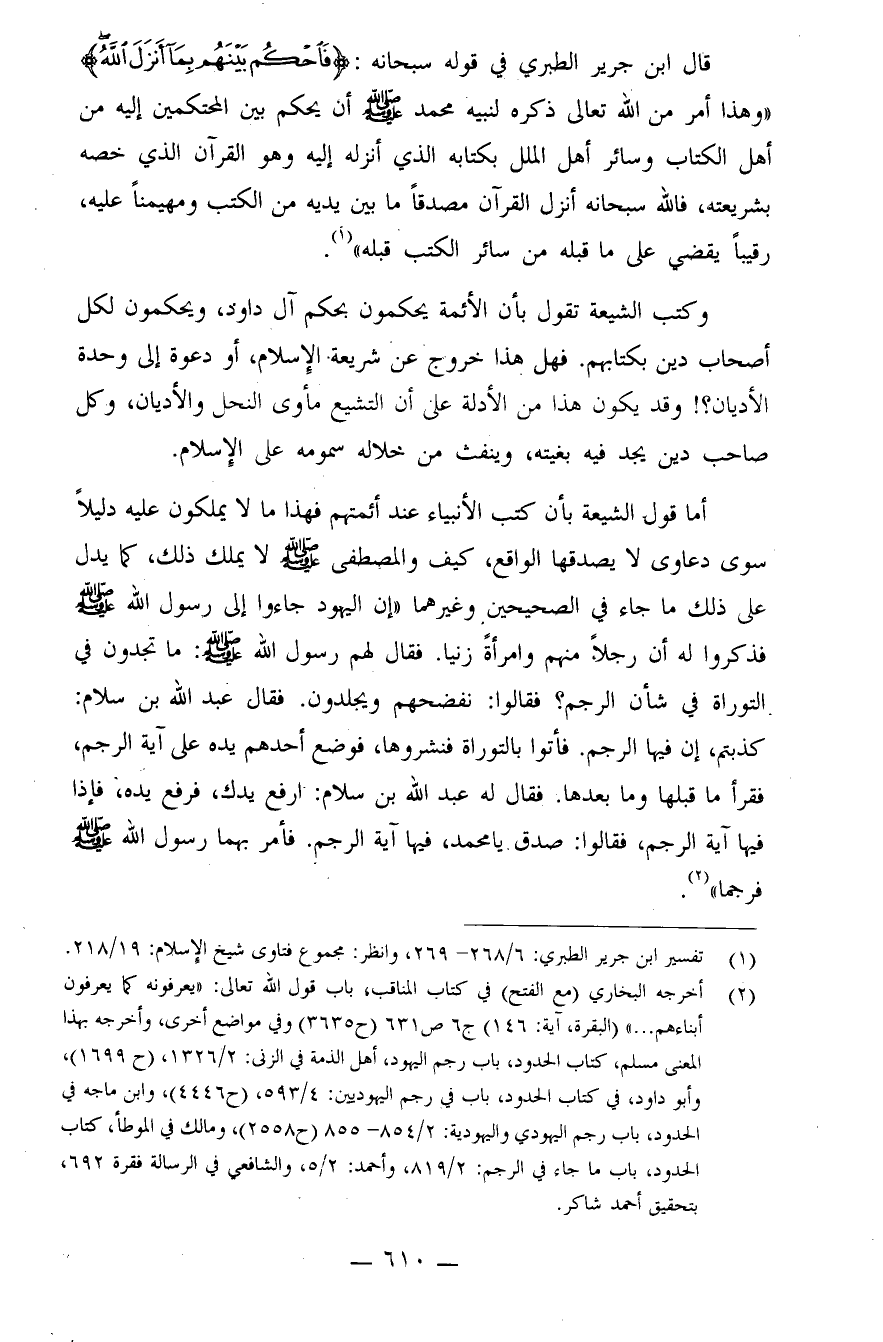 قال ابن جرير الطبري في قوله سبحانه : ﴿فَٱحْكُم بَيْنَهُم بِمَآ أَنزَلَ ٱللَّهُ ۖ﴾
«وهذا أمر من الله تعالى ذكره لنبيه محمد ﷺ أن يحكم بين المحتكمين إليه من
أهل الكتاب وسائر أهل الملل بكتابه الذي أنزله إليه وهو القرآن الذي خصه
بشريعته، فالله سبحانه أنزل القرآن مصدقاً ما بين يديه من الكتب ومهيمناً عليه،
رقيباً يقضي على ما قبله من سائر الكتب قبله»(أ).
وكتب الشيعة تقول بأن الأئمة يحكمون بحكم آل داود، ويحكمون لكل
أصحاب دين بكتابهم. فهل هذا خروج عن شريعة الإسلام، أو دعوة إلى وحدة
الأديان؟! وقد يكون هذا من الأدلة على أن التشيع مأوى النحل والأديان، وكل
صاحب دين يجد فيه بغيته، وينفث من خلاله سمومه على الإسلام.
أما قول الشيعة بأن كتب الأنبياء عند أئمتهم فهذا ما لا يملكون عليه دليلاً
سوى دعاوى لا يصدقها الواقع، كيف والمصطفى ﷺ لا يملك ذلك، كما يدل
على ذلك ما جاء في الصحيحين وغيرهما «إن اليهود جاءوا إلى رسول الله ﷺ
فذكروا له أن رجلاً منهم وامرأةً زنيا. فقال لهم رسول الله ﷺ: ما تجدون في
التوراة في شأن الرجم؟ فقالوا: نفضحهم ويجلدون. فقال عبد الله بن سلام:
كذبتم، إن فيها الرجم. فأتوا بالتوراة فنشروها، فوضع أحدهم يده على آية الرجم،
فقرأ ما قبلها وما بعدها. فقال له عبد الله بن سلام: ارفع يدك، فرفع يده، فإذا
فيها آية الرجم، فقالوا: صدق يامحمد، فيها آية الرجم. فأمر بهما رسول الله ﷺ
فرجما»(٢).
(١) تفسير ابن جرير الطبري: ٢٦٨/٦– ٢٦٩، وانظر: مجموع فتاوى شيخ الإسلام: ٢١٨/١٩.
(٢) أخرجه البخاري (مع الفتح) في كتاب المناقب، باب قول الله تعالى: «يعرفونه كما يعرفون
أبناءهم...» (البقرة، آية: ١٤٦) ج٦ ص٦٣١ (ح٣٦٣٥) وفي مواضع أخرى، وأخرجه بهذا
المعنى مسلم، كتاب الحدود، باب رجم اليهود، أهل الذمة في الزنى: ١٣٢٦/٢، (ح ١٦٩٩)،
وأبو داود، في كتاب الحدود، باب في رجم اليهوديين: ٥٩٣/٤، (ح٤٤٤٦)، وابن ماجه في
الحدود، باب رجم اليهودي واليهودية: ٨٥٤/٢– ٨٥٥ (ح٢٥٥٨)، ومالك في الموطأ، كتاب
الحدود، باب ما جاء في الرجم: ٨١٩/٢، وأحمد: ٥/٢، والشافعي في الرسالة فقرة ٦٩٢،
بتحقيق أحمد شاكر.
— ٦١٠ —